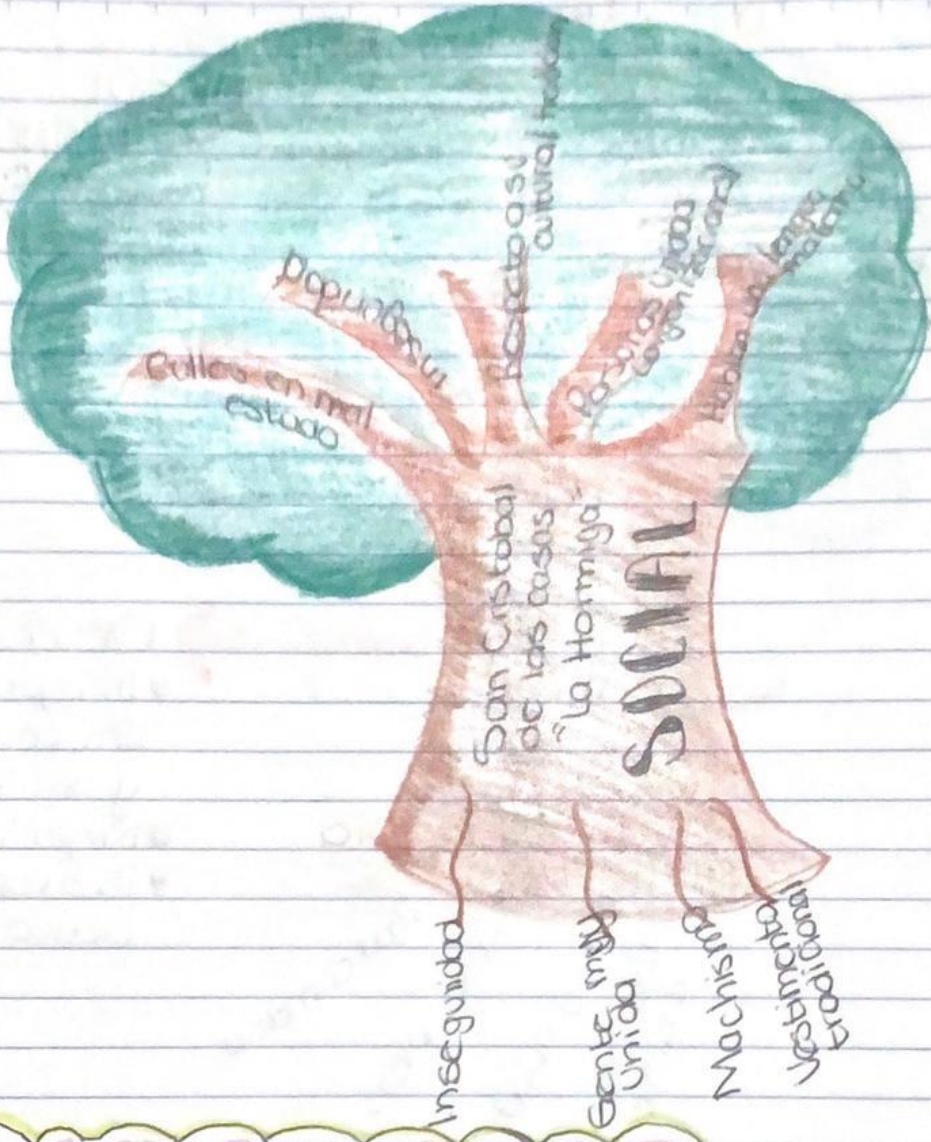 Calles en mal
estado
inseguridad
Respecto a su
cultural
Personas unidas
Hablan una lengua
materna
San Cristobal
de las casas
"La Hormiga"
SOCIAL
Inseguridad
Gente muy
unida
Machismo
Vestimenta
tradicional